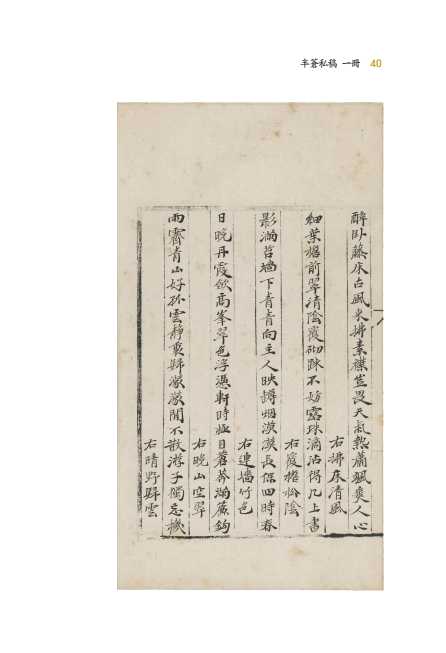 半蒼私稿 一冊 40
醉臥藤床古風來拂素襟豈畏天氣熱蕭颯爽人心
右拂床清風
細葉檐前翠清陰覆砌踈不妨露珠滴沾得几上書
右覆檐松陰
影滿苔墻下青青向主人映罇烟漠漠長保四時春
右連墻竹色
日晚丹霞斂高峯翠色浮憑軒時極目蒼莽滿簾鉤
右晚山空翠
雨霽青山好孤雲靜裏歸澹澹閒不散游子獨忘機
右晴野歸雲